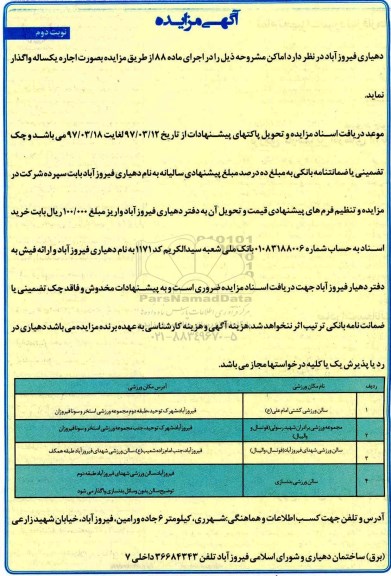 آگهی مزایده
نوبت دوم
دهیاری فیروز آباد در نظر دارد اماکن مشروحه ذیل را در اجرای ماده ۸۸ از طریق مزایده بصورت اجاره یکساله واگذار
نماید.
موعد دریافت اسناد مزایده و تحویل پاکتهای پیشنهادات از تاریخ ۹۷/۰۳/۱۲ لغایت ۹۷/۰۳/۱۸ می باشد و چک
تضمینی یا ضمانتنامه بانکی به مبلغ ده درصد مبلغ پیشنهادی سالیانه به نام دهیاری فیروز آباد بابت سپرده شرکت در
مزایده و تنظیم فرم های پیشنهادی قیمت و تحویل آن به دفتر دهیاری فیروز آباد واریز مبلغ ۱۰۰/۰۰۰ ریال بابت خرید
اسناد به حساب شماره ۰۱۰۸۳۱۸۸۰۰۶ بانک ملی شعبه سیدالکریم کد ۱۱۷۱ به نام دهیاری فیروز آباد و ارائه فیش به
دفتر دهیار فیروز آباد جهت دریافت اسناد مزایده ضروری است و به پیشنهادات مخدوش و فاقد چک تضمینی یا
ضمانت نامه بانکی ترتیب اثر نخواهد شد، هزینه آگهی و هزینه کارشناسی به عهده برنده مزایده می باشد دهیاری در
رد یا پذیرش یک یا کلیه درخواستها مجاز می باشد.
ردیف نام مکان ورزشی آدرس مکان ورزشی
۱ سالن ورزشی کشتی امام علی (ع) فیروزآباد،شهرک توحید،طبقه دوم مجموعه ورزشی استخر و سونا فیروزان
۲ مجموعه ورزشی برادران شهید رسولی (فوتسال و فیروزآباد،شهرک توحید، جنب مجموعه ورزشی استخر و سونا فیروزان
والیبال)
۳ سالن ورزشی شهدای فیروزآباد (فوتسال،والیبال) فیروزآباد،جنب امامزاده شعیب (ع) سالن ورزشی شهدای فیروزآباد طبقه همکف
۴ سالن ورزشی بدنسازی فیروزآباد،سالن ورزشی شهدای فیروزآباد طبقه دوم
توضیح سالن بدون وسائل بدنسازی واگذار می شود
آدرس و تلفن جهت کسب اطلاعات و هماهنگی: شهرری، کیلومتر ۶ جاده ورامین، فیروز آباد، خیابان شهید زارعی
(برق) ساختمان دهیاری و شورای اسلامی فیروز آباد تلفن ۳۶۶۸۴۳۴۳ داخلی ۷
ParsNamadData
۰۲۱-۸۸۳۴۹۶۷۰-۵